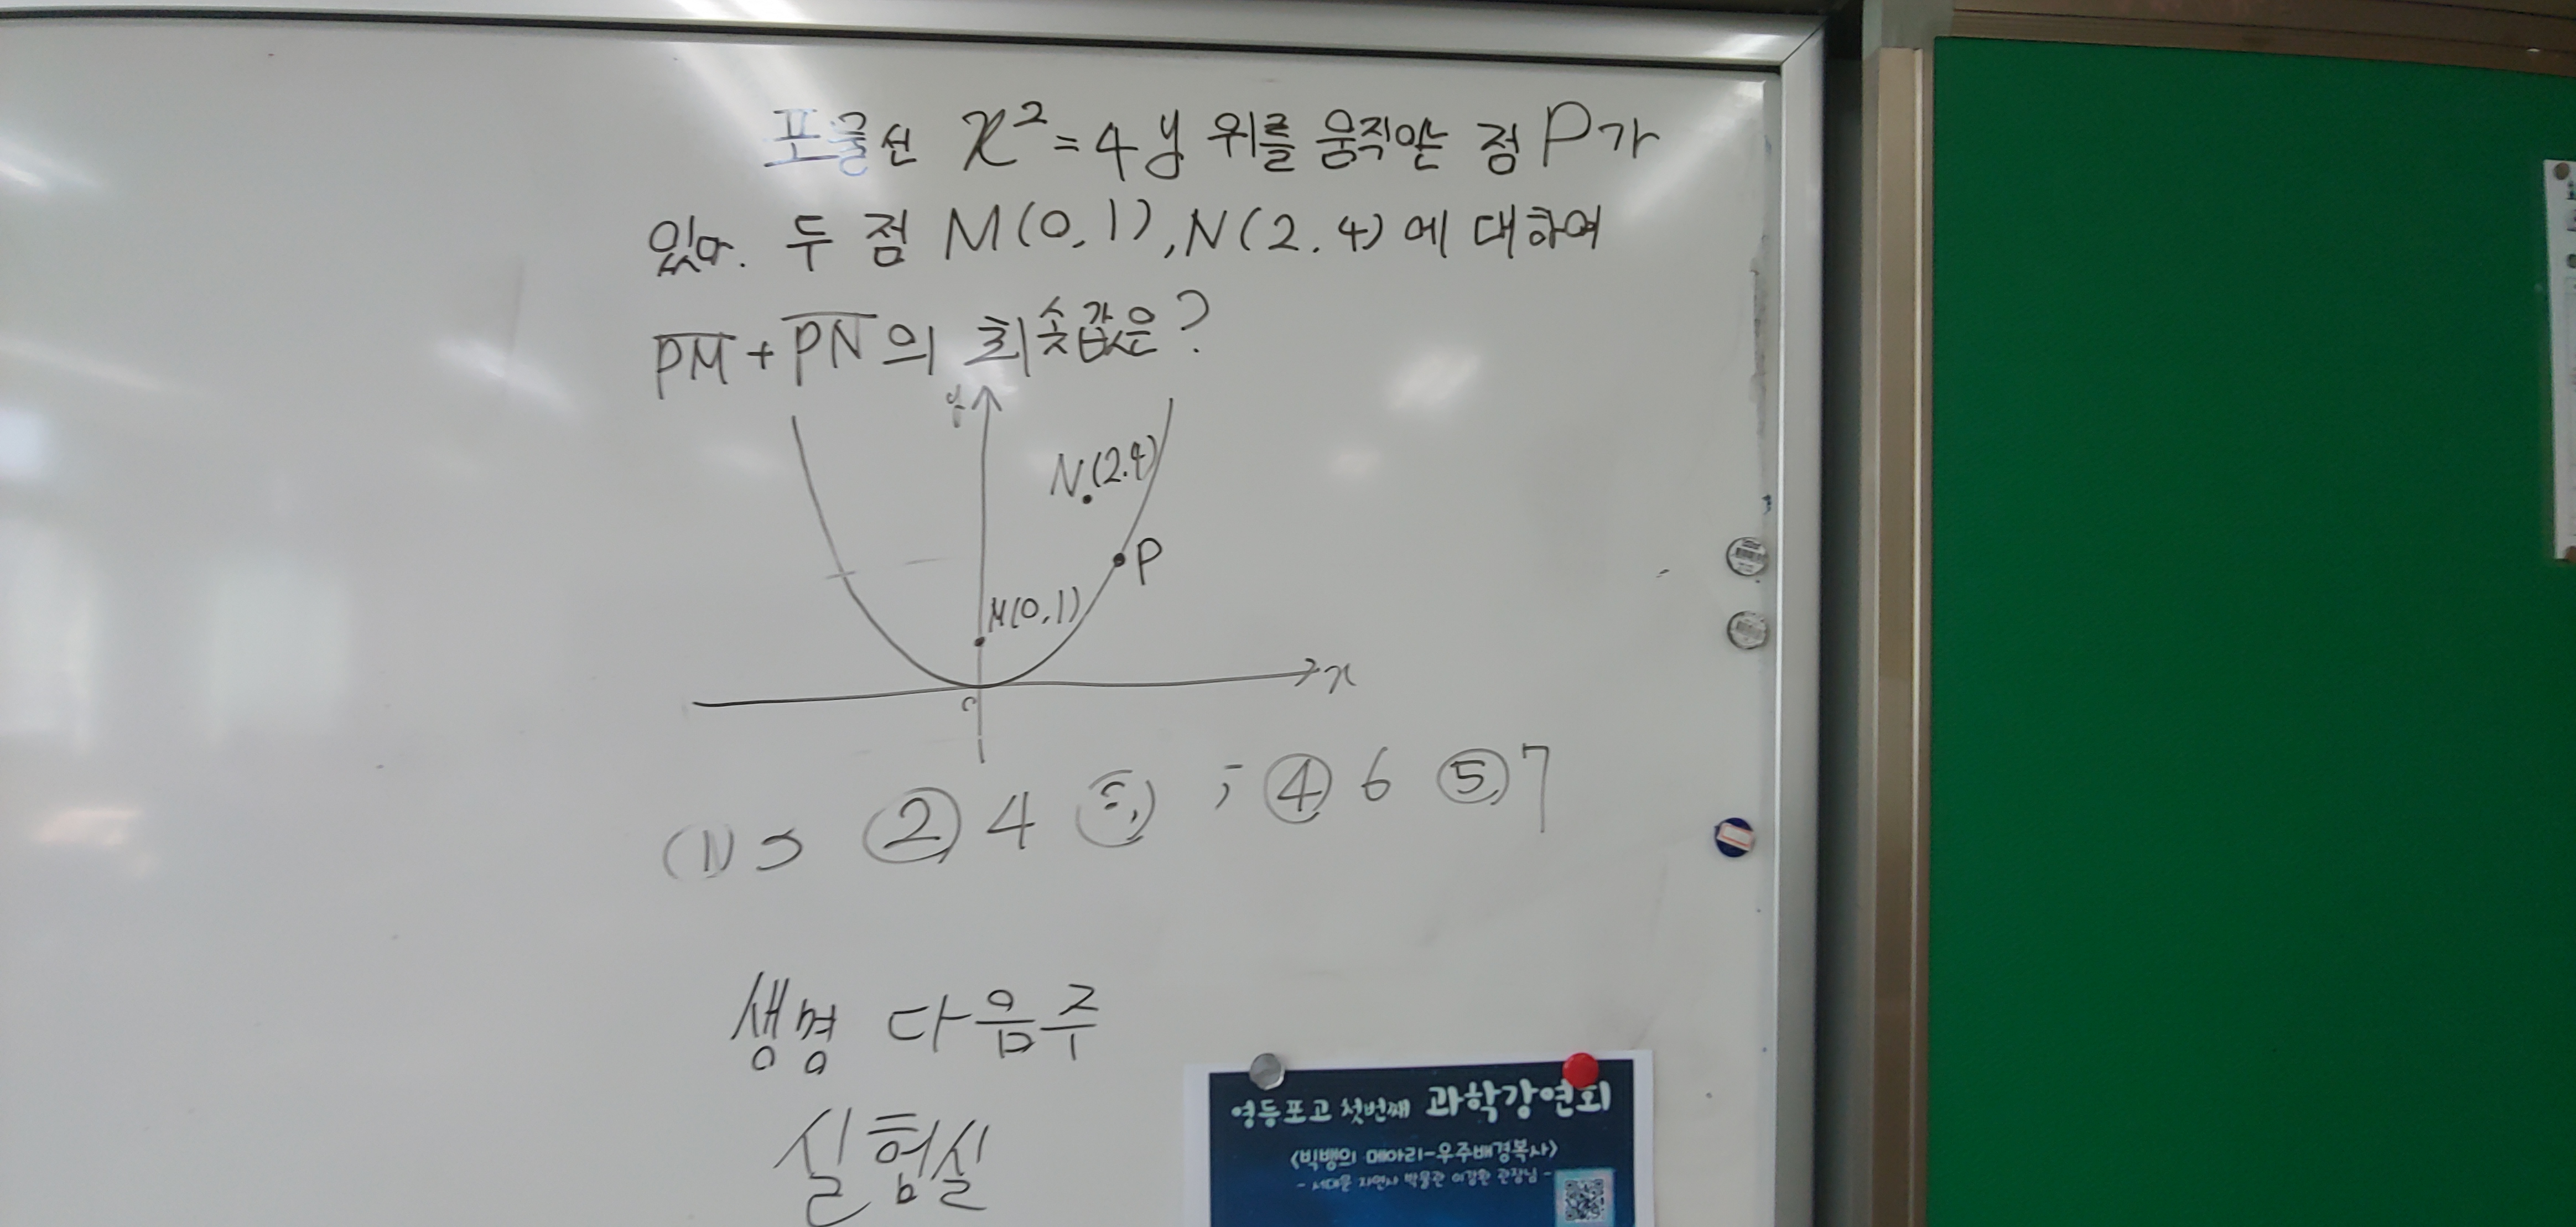 포물선 x²=4y 위를 움직이는 점 P가
있다. 두 점 M(0,1), N(2.4)에 대하여
PM + PN의 최솟값은?
y
N(2.4)
P
M(0,1)
x
(1) 3 ② 4 ④ 6 ⑤ 7
생명 다음주
실험실
영등포고 첫번째 과학강연회
<빅뱅의 메아리-우주배경복사>
- 서대문 자연사 박물관 이강환 관장님 -